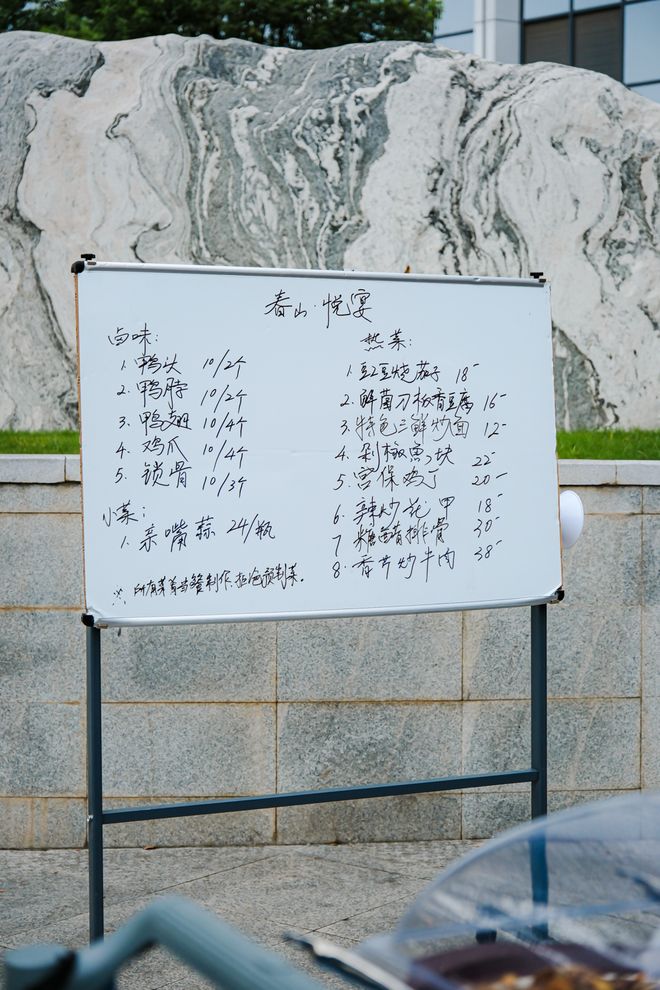 春山·悦宴
卤味:
1. 鸭头 10/2个
2. 鸭脖 10/2个
3. 鸭翅 10/4个
4. 鸡爪 10/4个
5. 锁骨 10/3个
小菜:
1. 亲嘴蒜 24/瓶
※. 所有菜首当餐制作, 拒绝预制菜.
热菜:
1. 豇豆烧茄子 18-
2. 鲜菌刀板香豆腐 16-
3. 特色三鲜炒面 12-
4. 剁椒鱼块 22-
5. 宫保鸡丁 20-
6. 辣炒花甲 18-
7 排骨 30-
8. 香芹炒牛肉 38-